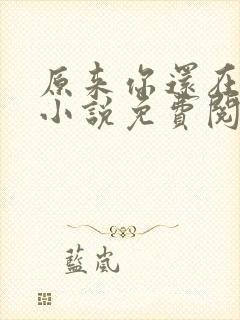 原来你還在
小說免費閱
藍嵐